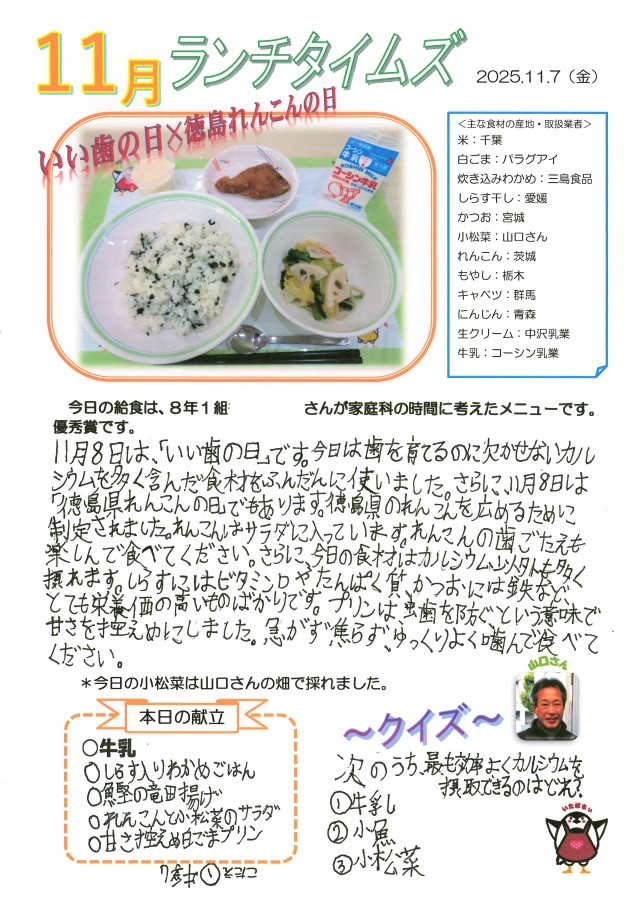 11月 ランチタイムズ
2025.11.7（金）
いい歯の日×徳島れんこんの日
＜主な食材の産地・取扱業者＞
米：千葉
白ごま：パラグアイ
炊き込みわかめ：三島食品
しらす干し：愛媛
かつお：宮城
小松菜：山口さん
れんこん：茨城
もやし：栃木
キャベツ：群馬
にんじん：青森
生クリーム：中沢乳業
牛乳：コーシン乳業
コーシン牛乳
KOSHIN MILK
コーシン牛乳
今日の給食は、８年１組 さんが家庭科の時間に考えたメニューです。
優秀賞です。
11月8日は、「いい歯の日」です。今日は歯を育てるのに欠かせないカル
シウムを多く含んだ食材をふんだんに使いました。さらに、11月8日は
「徳島県れんこんの日」でもあります。徳島県のれんこんを広めるために
制定されました。れんこんはサラダに入っています。れんこんの歯ごたえも
楽しんで食べてください。さらに、今日の食材はカルシウム以外も多く
摂れます。しらすにはビタミンDやたんぱく質、かつおには鉄など、
とても栄養価の高いものばかりです。プリンは、虫歯を防ぐ、という意味で
甘さを控えめにしました。急がず焦らず、ゆっくりよく噛んで食べて
ください。
＊今日の小松菜は山口さんの畑で採れました。
山口さん
本日の献立
○牛乳
○しらす入りわかめごはん
○鰹の竜田揚げ
○れんこんと小松菜のサラダ
○甘さ控えめ白ごまプリン
～クイズ～
次のうち、最も効率よくカルシウムを
摂取できるのはどれ？
①牛乳
②小魚
③小松菜
いただきぃ
こたえ①牛乳